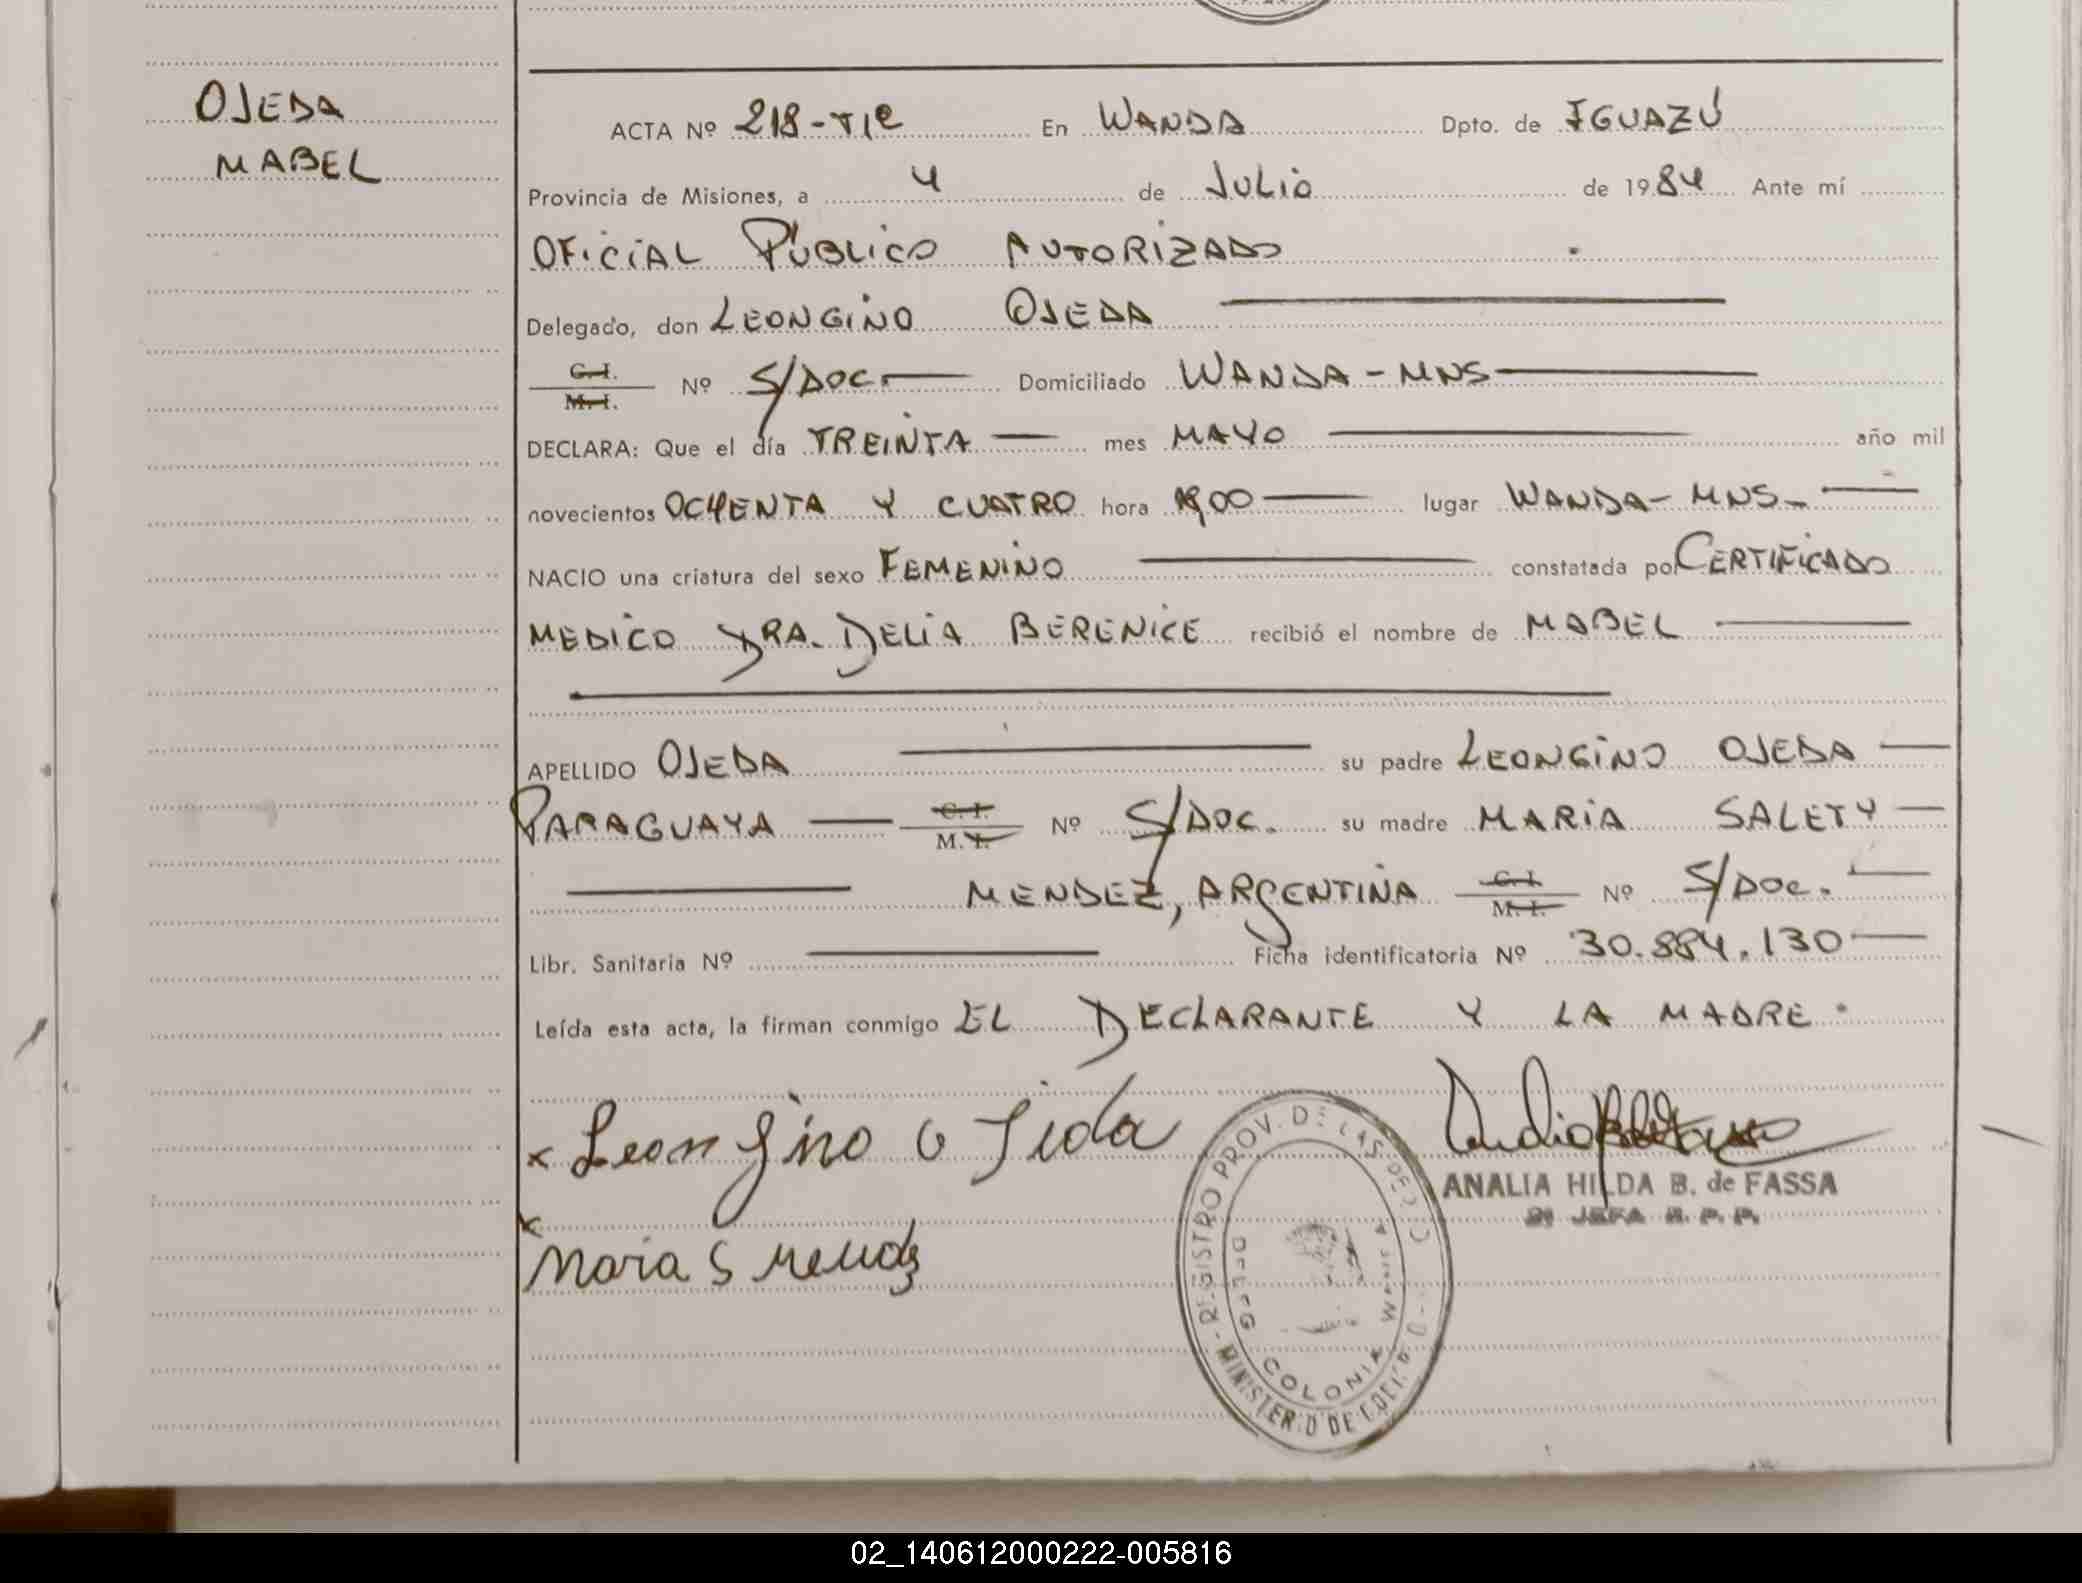 OJEDA
MABEL
ACTA Nº 218-TIº En WANDA Dpto. de IGUAZÚ
Provincia de Misiones, a 4 de JULIO de 1984 Ante mí
OFICIAL PÚBLICO AUTORIZADO
Delegado, don LEONGINO OJEDA
C.I. / M.I. Nº S/DOC. Domiciliado WANDA-MNS
DECLARA: Que el día TREINTA mes MAYO año mil
novecientos OCHENTA Y CUATRO hora lugar WANDA-MNS-
NACIO una criatura del sexo FEMENINO constatada por CERTIFICADO
MEDICO DRA. DELIA BERENICE recibió el nombre de MABEL
APELLIDO OJEDA su padre LEONGINO OJEDA
PARAGUAYA C.I. / M.I. Nº S/DOC. su madre MARIA SALETY
MENDEZ, ARGENTINA C.I. / M.I. Nº S/DOC.
Libr. Sanitaria Nº Ficha identificatoria Nº 30.884.130
Leída esta acta, la firman conmigo EL DECLARANTE Y LA MADRE.
x Leongino Ojeda
x
Maria S Mendz
ANALIA HILDA B. de FASSA
JEFA R. P. P.
REGISTRO PROV. DE LAS
MINISTERIO DE
DELEG COLONIA WANDA
02_140612000222-005816